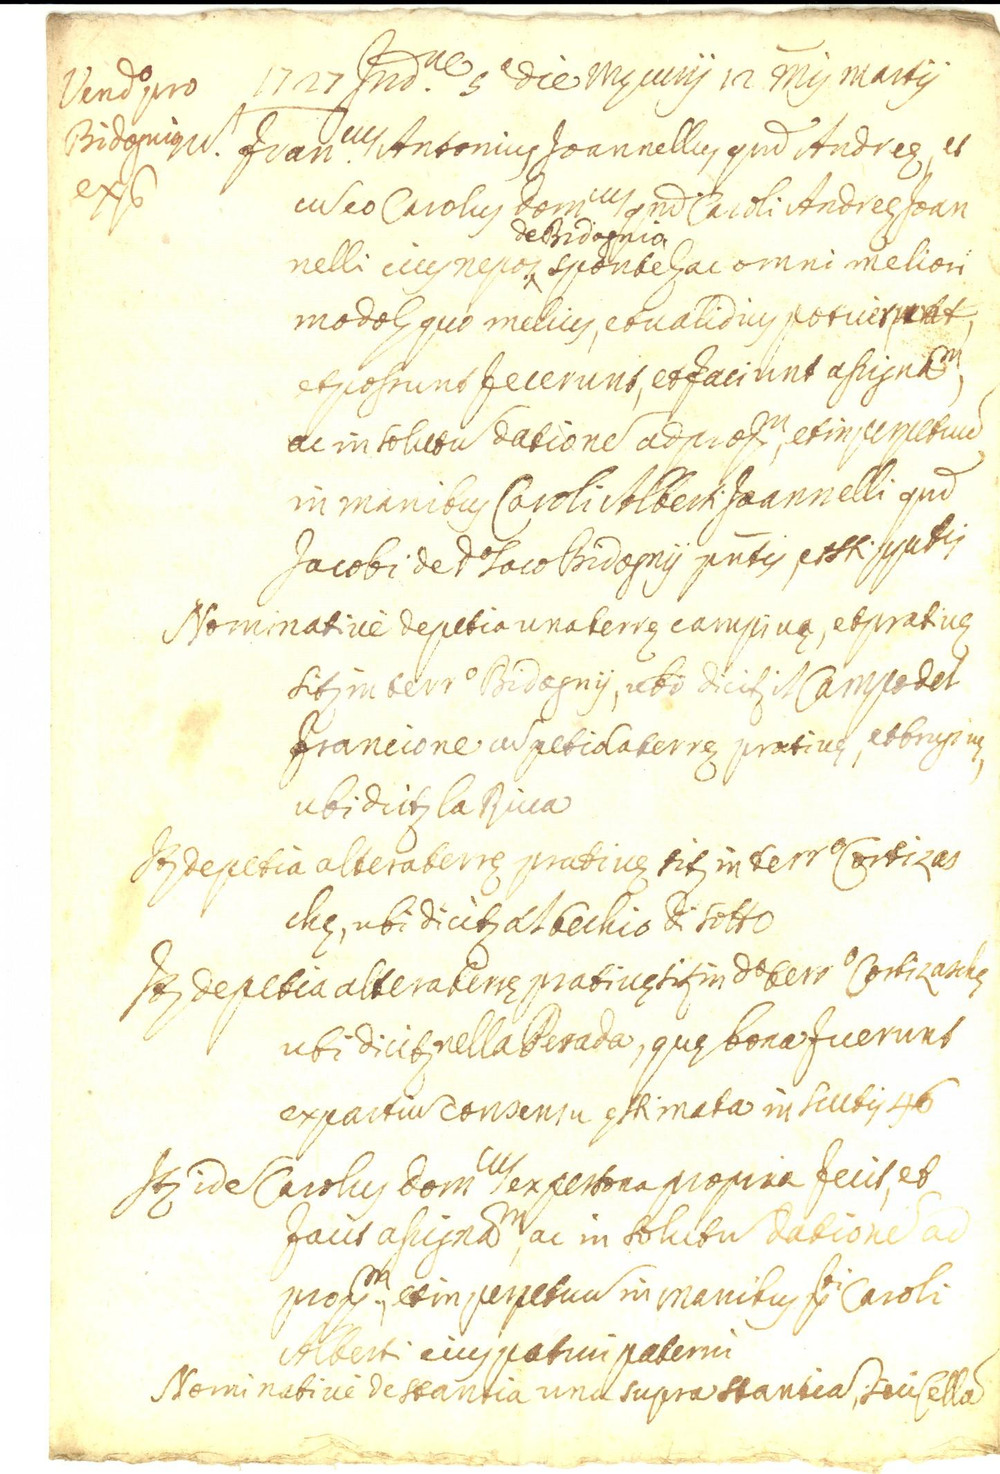 Vend.o pro
Bidogniqu.
ex 6
1727 Ind.ne 5.a die Mercurij 12 mēs martij
Fran.cus Antonius Joannellus qud Andreę, et
cū eo Carolus Dom.cus qud Caroli Andreę Joan
de Bidognia
nelli eius nepos sponte hac omni meliori
modo quo melius, et validius potuerunt,
et possunt fecerunt, et faciunt assignam,
ac in solutū datione ad prop.m, et in perpetuū
in manibus Caroli Alberti Joannelli qud
Jacobi de d.o loco Bidognij pntis, et stipptis
Nominative de petia una terrę campiuę, et pratiuę
sitę in terr.o Bidognij, ubi dicitr il Campo del
Francione cū petiola terrę pratiuę, et brugiuę,
ubi dicitr la Riua
Itē de petia altera terrę pratiuę sitę in terr.o Cortizas
chę, ubi dicitr al Vechio di sotto
Itē de petia altera terrę pratiuę sitę in d.o terr.o Cortizaschę
ubi dicitr nella Perada, quę bona fuerunt
ex partiū consensu ęstimata in scutis 46
Itē idē Carolus Dom.cus ex persona propria fecit, et
facit assignam, ac in solutū datione ad
prop.m, et in perpetuū in manibus Caroli
Alberti eius patrui paterni
Nominative de stantia una supra stantia, seu cella